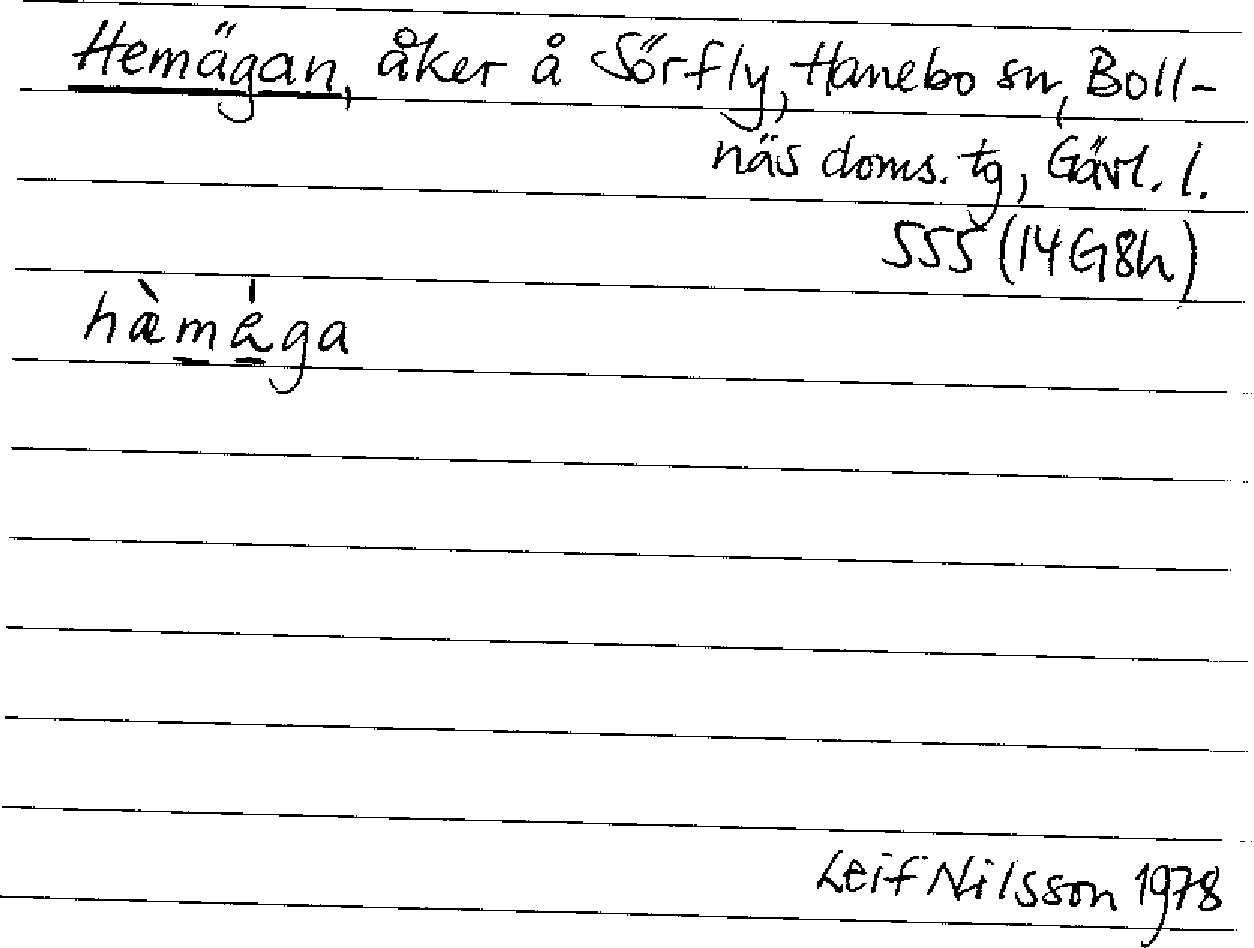 Hemägan, åker å Sörfly, Hanebo sn, Boll-
näs doms. tg, Gävl. l.
SSS (14G8h)
hæ̀mä́ga
Leif Nilsson 1978